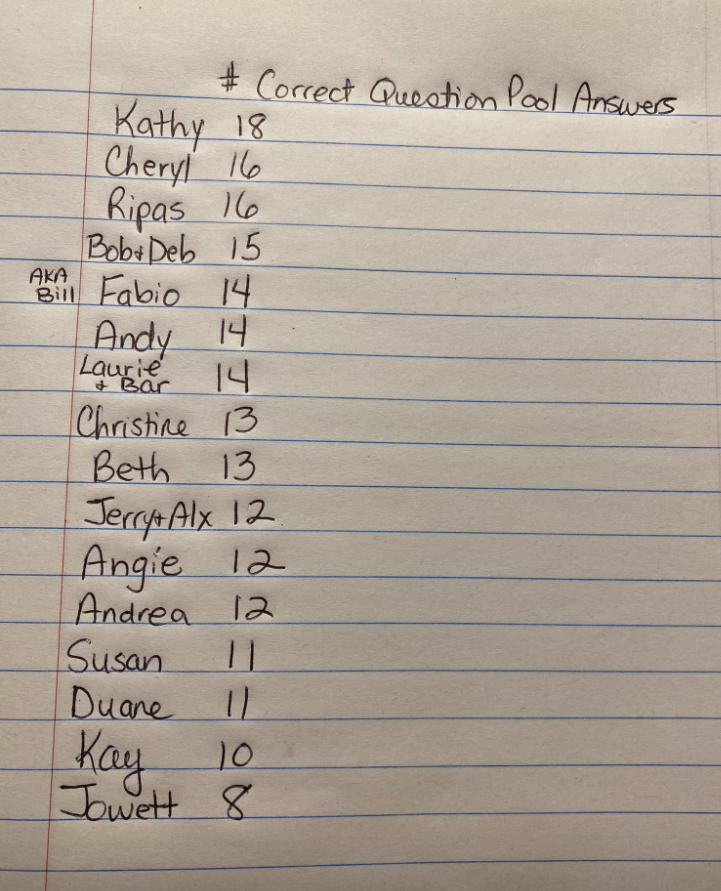 # Correct Question Pool Answers
Kathy 18
Cheryl 16
Ripas 16
Bob+Deb 15
AKA
Bill Fabio 14
Andy 14
Laurie
+ Bar 14
Christine 13
Beth 13
Jerry+Alx 12
Angie 12
Andrea 12
Susan 11
Duane 11
Kay 10
Jowett 8